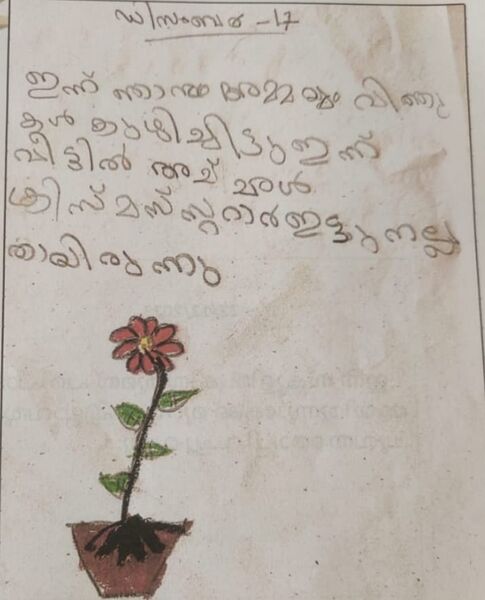 ഡിസംബർ -17
ഇന്ന് ഞാനും അമ്മയും വിത്തു
കൾ കുഴിച്ചിട്ടു ഇന്ന്
വീട്ടിൽ അച്ഛൾ
ക്രിസ്മസ് സ്റ്റാർ ഇട്ടു നല്ല
തായിരുന്നു